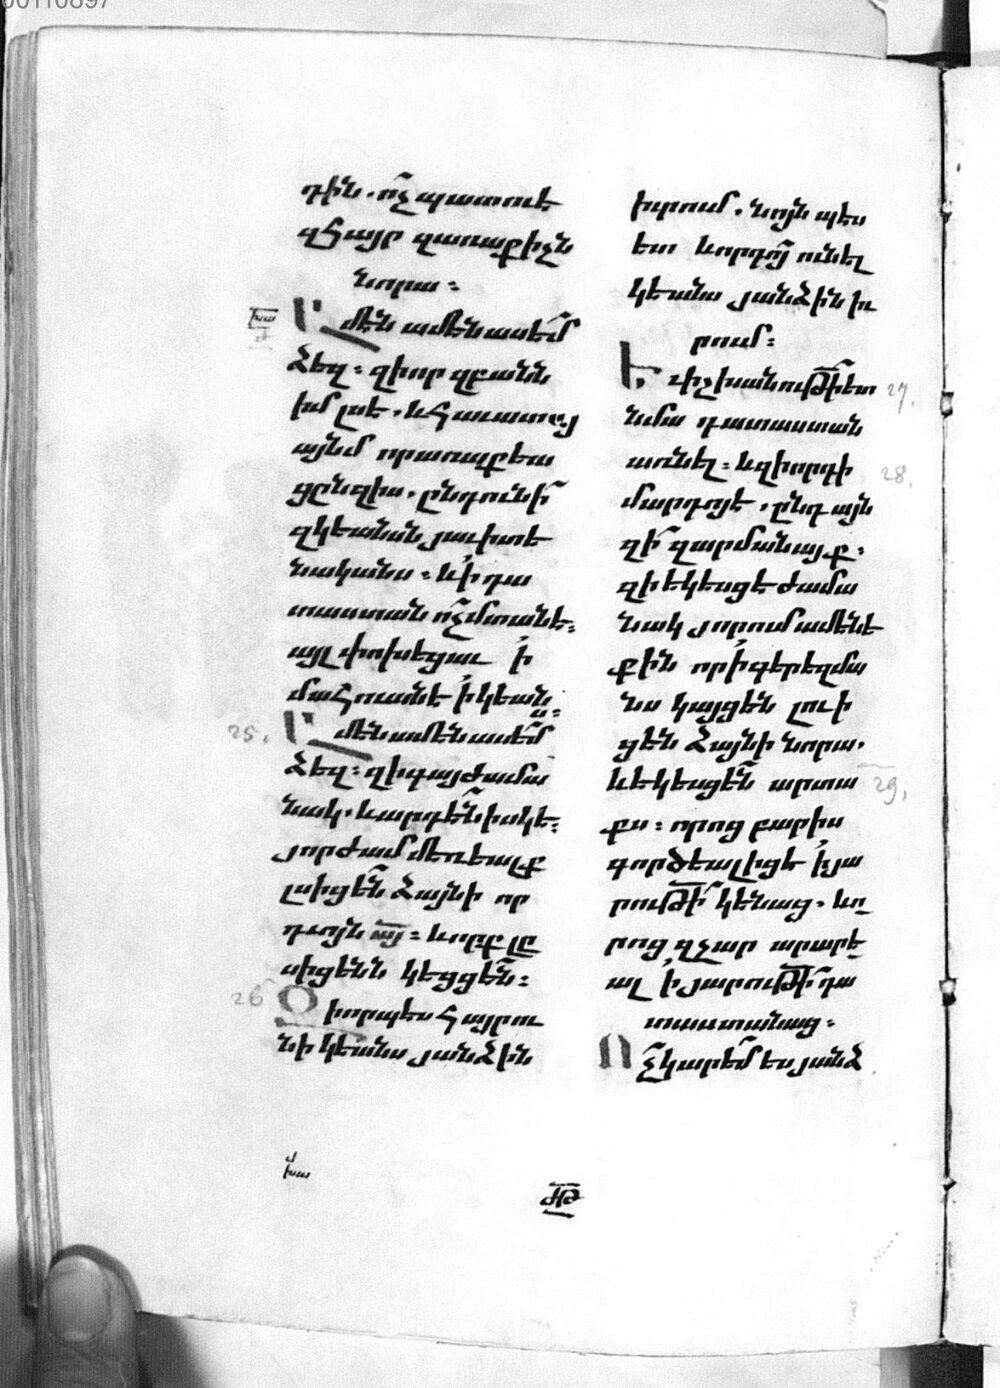 00110897
դին. ո՞չ պատուէ
զՀայր զառաքիչն
նորա :
խա
ժ
Ա
մէն ամէն ասեմ
ձեզ : զի որ զբանն
իմ լսէ. և հաւատայ
այնմ որ առաքեա
ցըն զիս. ընդունի
զկեանսն յաւիտե
նականս : և ի դա
տաստան ո՛չ մտանէ:
այլ փոխեցաւ ի
մահուանէ ի կեանս:
25.
Ա
մէն ամէն ասեմ
ձեզ : զի գայ ժամա
նակ. և արդէն իսկ է:
յորժամ մեռեալք
լսիցեն ձայնի որ
դւոյն այ : և որք լը
սիցենն կեցցեն :
26
Օ
րպէս հայր ու
նի կեանս յանձին
իւրում. նոյնպէս
ետ և որդւոյ ունել
կեանս յանձին իւ
րում :
27.
և իշխանութի ետ
նմա դատաստան
առնել : և զի որդի
28.
մարդոյ է. ընդ այն
զի զարմանայք :
զի եկեսցէ ժամա
նակ յորում ամենե
քին որ ի գերեզմա
նս կայցեն լուի
ցեն ձայնի նորա.
և եկեսցեն արտա
29.
քս : որոց բարիս
գործեալ իցէ ի յա
րութի կենաց. և ո
րոց զչար արարե
ալ ի յարութի դա
տաստանաց :
Ո
չ կարեմ ես յանձ
խա
ԺԹ